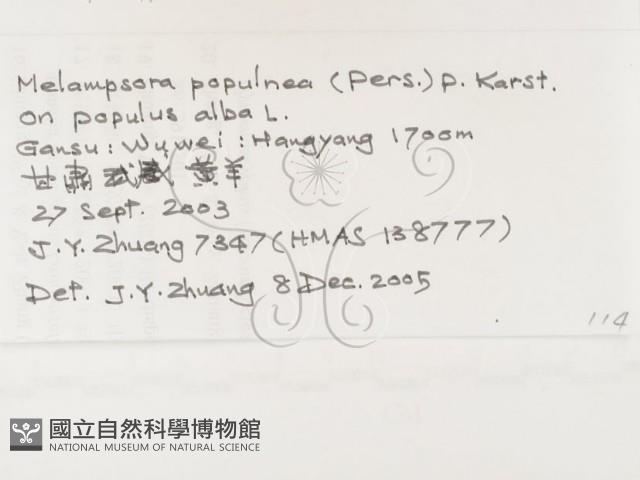 Melampsora populnea (Pers.) P. Karst.
on populus alba L.
Gansu: Wuwei: Hangyang 1700m
甘肅 武威 黄羊
27 Sept. 2003
J.Y. Zhuang 7347 (HMAS 138777)
Det. J.Y. Zhuang 8 Dec. 2005
114
國立自然科學博物館
NATIONAL MUSEUM OF NATURAL SCIENCE